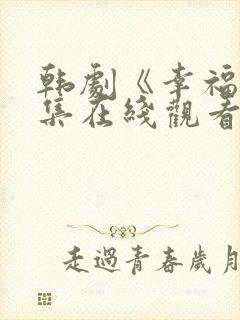 韩劇《幸福
集在綫觀看
走過青春歲月